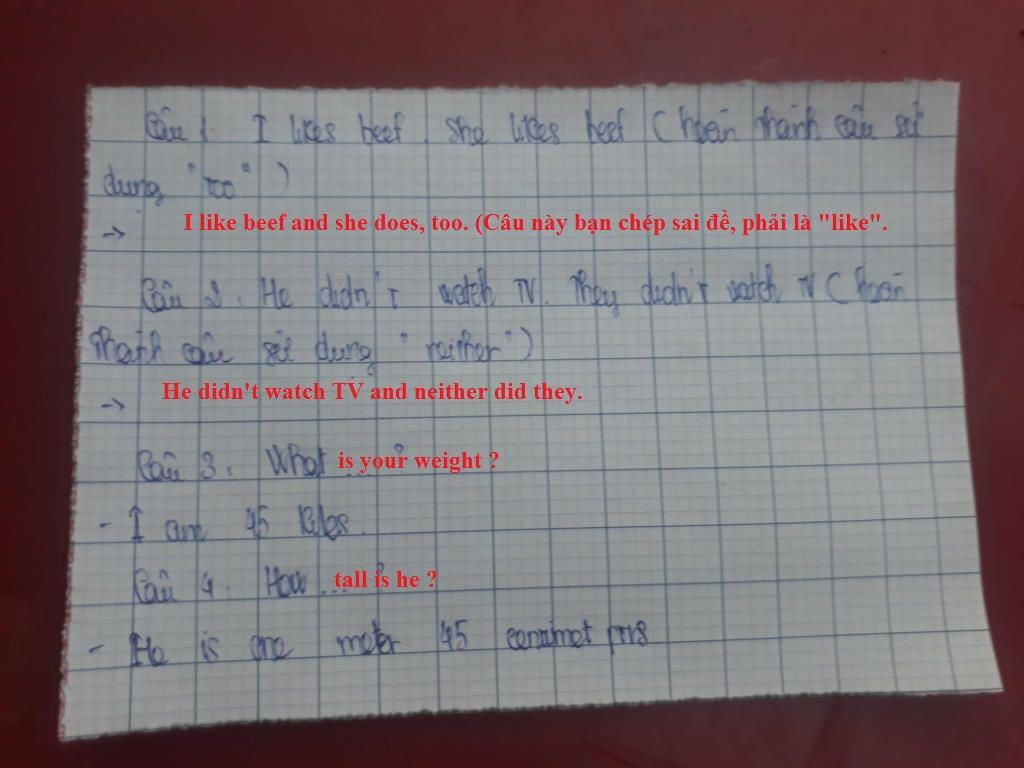 Câu 1. I likes beef. She likes beef (hoàn thành câu sử
dụng "too")
→ I like beef and she does, too. (Câu này bạn chép sai đề, phải là "like".
Câu 2. He didn't watch TV. They didn't watch TV (hoàn
thành câu sử dụng "neither")
→ He didn't watch TV and neither did they.
Câu 3. What is your weight ?
- I am 45 kilos.
Câu 4. How tall is he ?
- He is one meter 45